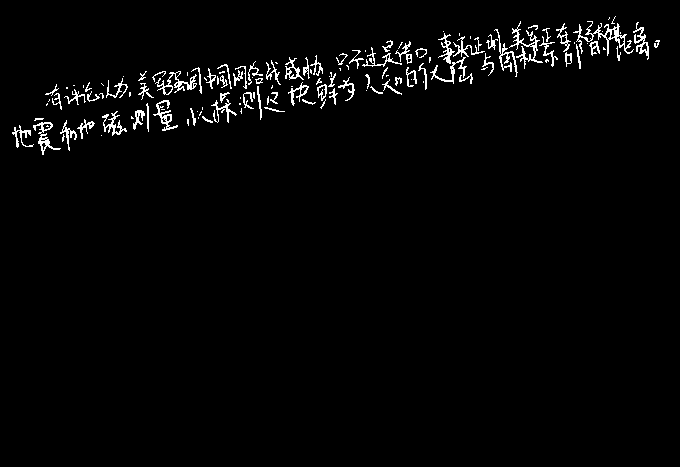 有评论认为，美军强调中国网络战威胁，只不过是借口，事实证明，美军正在
地震和地磁测量，以探测这块鲜为人知的大陆，与南极东部的距离。